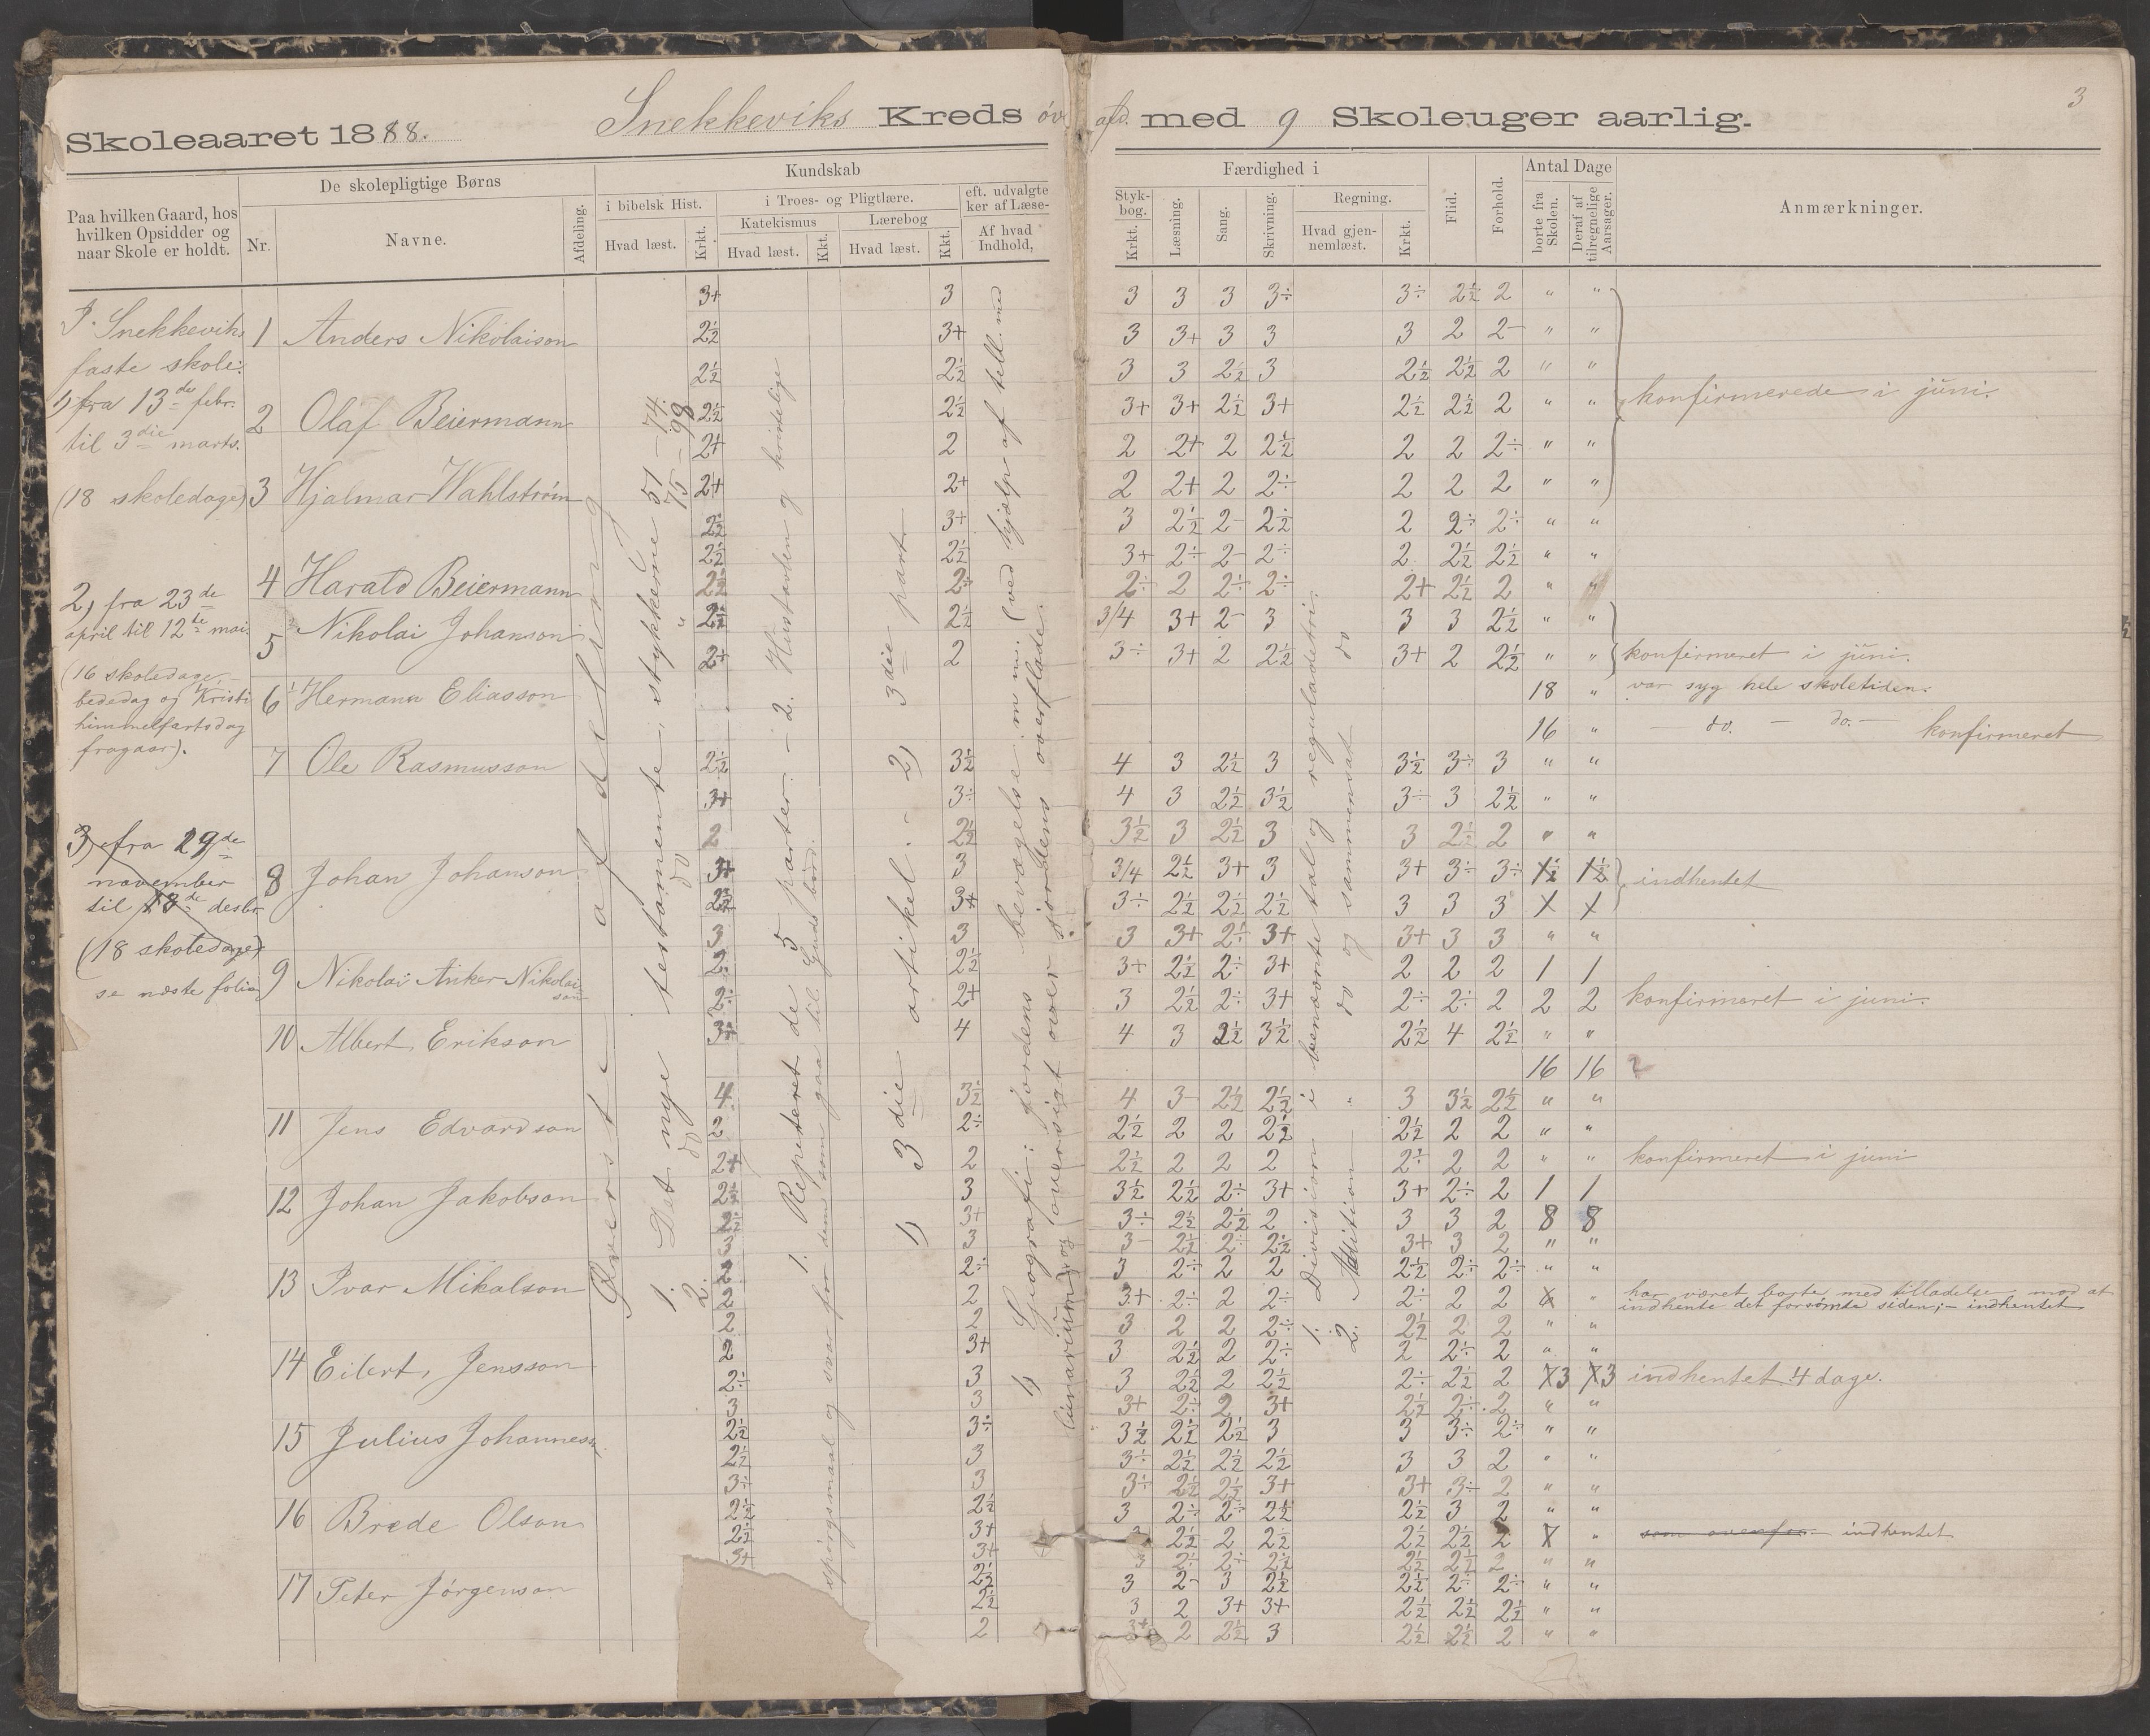 3
Skoleaaret 1888. Snekkeviks Kreds öv. afd. med 9 Skoleuger aarlig.
Paa hvilken Gaard, hos hvilken Opsidder og naar Skole er holdt.
De skolepligtige Børns
Nr.
Navne.
Afdeling.
Kundskab
i bibelsk Hist.
Hvad læst.
Krkt.
i Troes- og Pligtlære.
Katekismus
Hvad læst.
Kkt.
Lærebog
Hvad læst.
Kkt.
eft. udvalgte
ker af Læse-
Af hvad
Indhold,
Færdighed i
Styk-
bog.
Krkt.
Læsning.
Sang.
Skrivning.
Regning.
Hvad gjen-
nemlæst.
Krkt.
Flid.
Forhold.
Antal Dage
borte fra
Skolen.
Deraf af
tilregnelige
Aarsager.
Anmærkninger.
I Snekkeviks
faste skole:
1) fra 13de febr.
til 3die marts.
(18 skoledage)
2, fra 23de
april til 12te mai.
(16 skoledage,
bededag og Kristi
himmelfartsdag
fragaar).
3) fra 29de
november
til 18de desbr.
(18 skoledage)
se næste folio
1 Anders Nikolaison
2 Olaf Beiermann
3 Hjalmar Wahlstrøm
4 Harald Beiermann
5 Nikolai Johanson
6 Hermann Eliasson
7 Ole Rasmusson
8 Johan Johanson
9 Nikolai Anker Nikolaison
10 Albert Erikson
11 Jens Edvardson
12 Johan Jakobson
13 Ivar Mikalson
14 Eilert Jensson
15 Julius Johanness.
16 Brede Olson
17 Peter Jörgenson
Øverste afdeling
1. Det nye testamente, stykkerne 51-74.
2. do do " 75-98
1. Repeteret de 5 parter. - 2. Hustavlen og kristelige
spørgsmaal og svar for dem som gaa til Guds bord.
1) 3die artikel. - 2) 3die part
1) Geografi: jordens bevægelse m. m. (ved hjælp af tell. med
lunarium) og oversigt over jordens overflade.
1. Division i benævnte tal og reguladetri.
2. Addition " do og sammensat do
3+ 3 3 3 3 3÷ 3÷ 2½ 2 " "
2½ 3+ 3 3+ 3 3 3 2 2- " "
2½ 2½ 3 3 2½ 3 2½ 2½ 2 " "
2½ 2½ 3+ 3+ 2½ 3+ 2½ 2½ 2 " "
2+ 2 2 2+ 2 2½ 2 2 2÷ " "
2+ 2+ 2 2+ 2 2÷ 2 2 2 " "
konfirmerede i juni.
2½ 3+ 3 2½ 2- 2½ 2 2÷ 2÷ " "
2½ 2½ 3+ 2÷ 2- 2÷ 2 2½ 2½ " "
2½ 2÷ 2÷ 2 2÷ 2÷ 2+ 2½ 2 " "
2½ 2½ 3/4 3+ 2- 3 3 3 2½ " "
2+ 2 3÷ 3+ 2 2½ 3+ 2 2½ " " konfirmeret i juni.
18 " var syg hele skoletiden.
16 " — do. — do. — konfirmeret
2½ 3½ 4 3 2½ 3 3½ 3÷ 3 " "
3+ 3÷ 4 3 2½ 3½ 3÷ 3 2½ " "
2 2½ 3½ 3 2½ 3 3 2½ 2 " "
3+ 3 3/4 2½ 3+ 3 3+ 3÷ 3÷ 1½ 1½ indhentet
2½ 3+ 3÷ 2½ 2½ 2½ 3 3 3
3 3 3 3+ 2÷ 3+ 3+ 3 3 " "
2÷ 2½ 3+ 2½ 2÷ 3+ 2 2 2 1 1
2÷ 2+ 3 2½ 2÷ 3+ 2÷ 2÷ 2 2 2 konfirmeret i juni.
3+ 4 4 3 2½ 3½ 2½ 4 2½ " "
16 16 ?
4 3½ 4 3- 2½ 2½ 3 3½ 2½ " "
2 2÷ 2½ 2 2 2½ 2½ 2 2 " "
2+ 2 2½ 2 2 2 2÷ 2 2 " " konfirmeret i juni
2½ 3 3½ 2½ 2÷ 3+ 3+ 2÷ 2 1 1
2½ 3+ 3÷ 2½ 2½ 2 3 3 2 8 8
3 3 3- 2½ 2÷ 2½ 3+ 3 2 " "
2 2÷ 3 2÷ 2 2 2½ 2÷ 2÷ " "
2 2 3+ 2÷ 2 2÷ 2÷ 2 2 " har været borte med tilladelse mod at
indhente det forsömte siden; - indhentet
2 2 3 2 2 2÷ 2½ 2 2 " "
2 3+ 3 2½ 2 2÷ 2 2÷ 2 " "
2÷ 3 3 2½ 2 2½ 2÷ 2½ 2 3 3 indhentet 4 dage.
3 3 3+ 2÷ 2 3+ 2½ 2÷ 2 " "
2½ 3÷ 3½ 2½ 2½ 3 3 3÷ 2÷ " "
2½ 3 3÷ 2½ 2½ 2½ 3 3 2 " "
3÷ 3 3÷ 2½ 2½ 3+ 3+ 3÷ 2 " "
2½ 2½ 3 2÷ 2÷ 2½ 2½ 3 2 " "
2½ 3+ 2½ 2 2½ 2½ 2½ 2 " som ovenfor. indhentet
3+ 3+ 3 2÷ 2÷ 2½ 2½ 2½ 2 " "
2½ 3 2- 3 2½ 2½ 2÷ 2÷ " "
2½ 3 2 3+ 3+ 2½ 2½ 2½ " "
2 3+ 2 2½ 3 2½ 2½ 2 " "